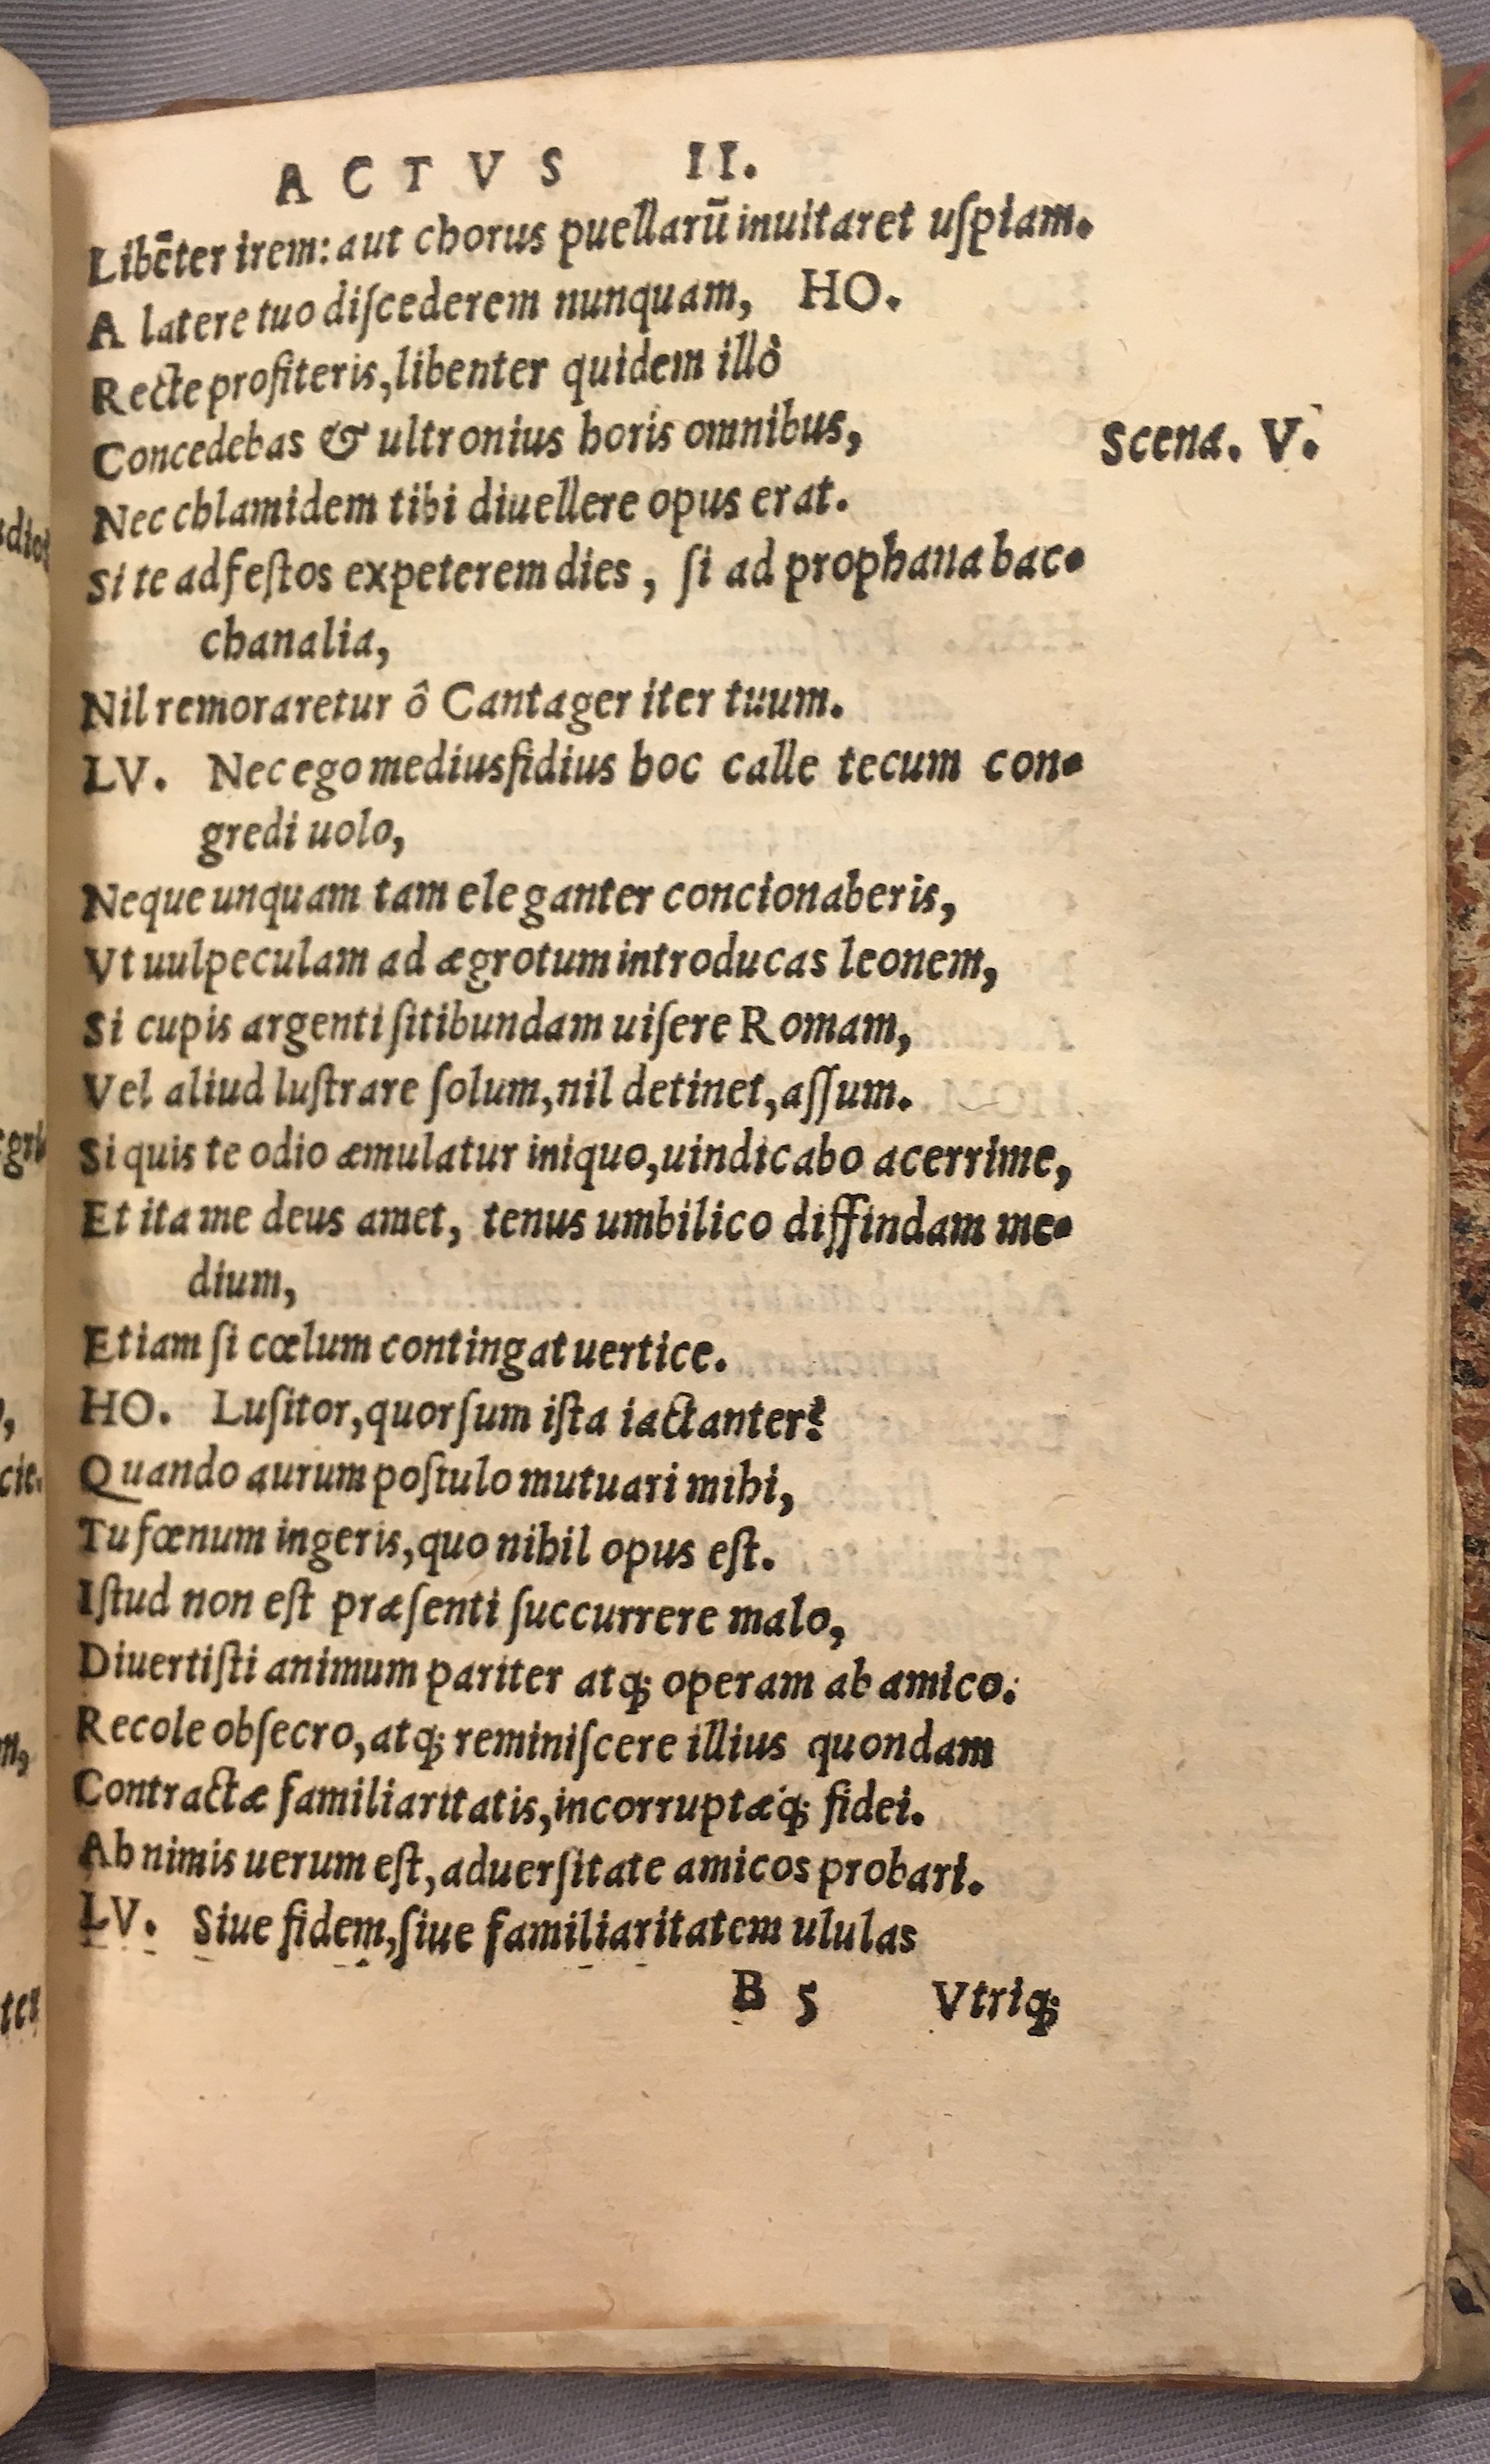 ACTVS II.
Libēter irem: aut chorus puellarū inuitaret uſpiam.
A latere tuo diſcederem nunquam, HO.
Recte profiteris, libenter quidem illò
Concedebas & ultronius horis omnibus,
Scena. V.
Nec chlamidem tibi diuellere opus erat.
Si te ad feſtos expeterem dies, ſi ad prophana bac-
chanalia,
Nil remoraretur ô Cantager iter tuum.
LV. Nec ego mediusfidius hoc calle tecum con-
gredi uolo,
Neque unquam tam eleganter concionaberis,
Vt uulpeculam ad ægrotum introducas leonem,
Si cupis argenti ſitibundam uiſere Romam,
Vel aliud luſtrare ſolum, nil detinet, aſſum.
Si quis te odio æmulatur iniquo, uindicabo acerrime,
Et ita me deus amet, tenus umbilico diffindam me-
dium,
Etiam ſi cœlum contingat uertice.
HO. Luſitor, quorſum iſta iactanter?
Quando aurum poſtulo mutuari mihi,
Tu fœnum ingeris, quo nihil opus eſt.
Iſtud non eſt præſenti ſuccurrere malo,
Diuertiſti animum pariter atq; operam ab amico.
Recole obſecro, atq; reminiſcere illius quondam
Contractæ familiaritatis, incorruptæq́; fidei.
Ah nimis uerum eſt, aduerſitate amicos probari.
LV. Siue fidem, ſiue familiaritatem ululas
B 5 Vtriq;